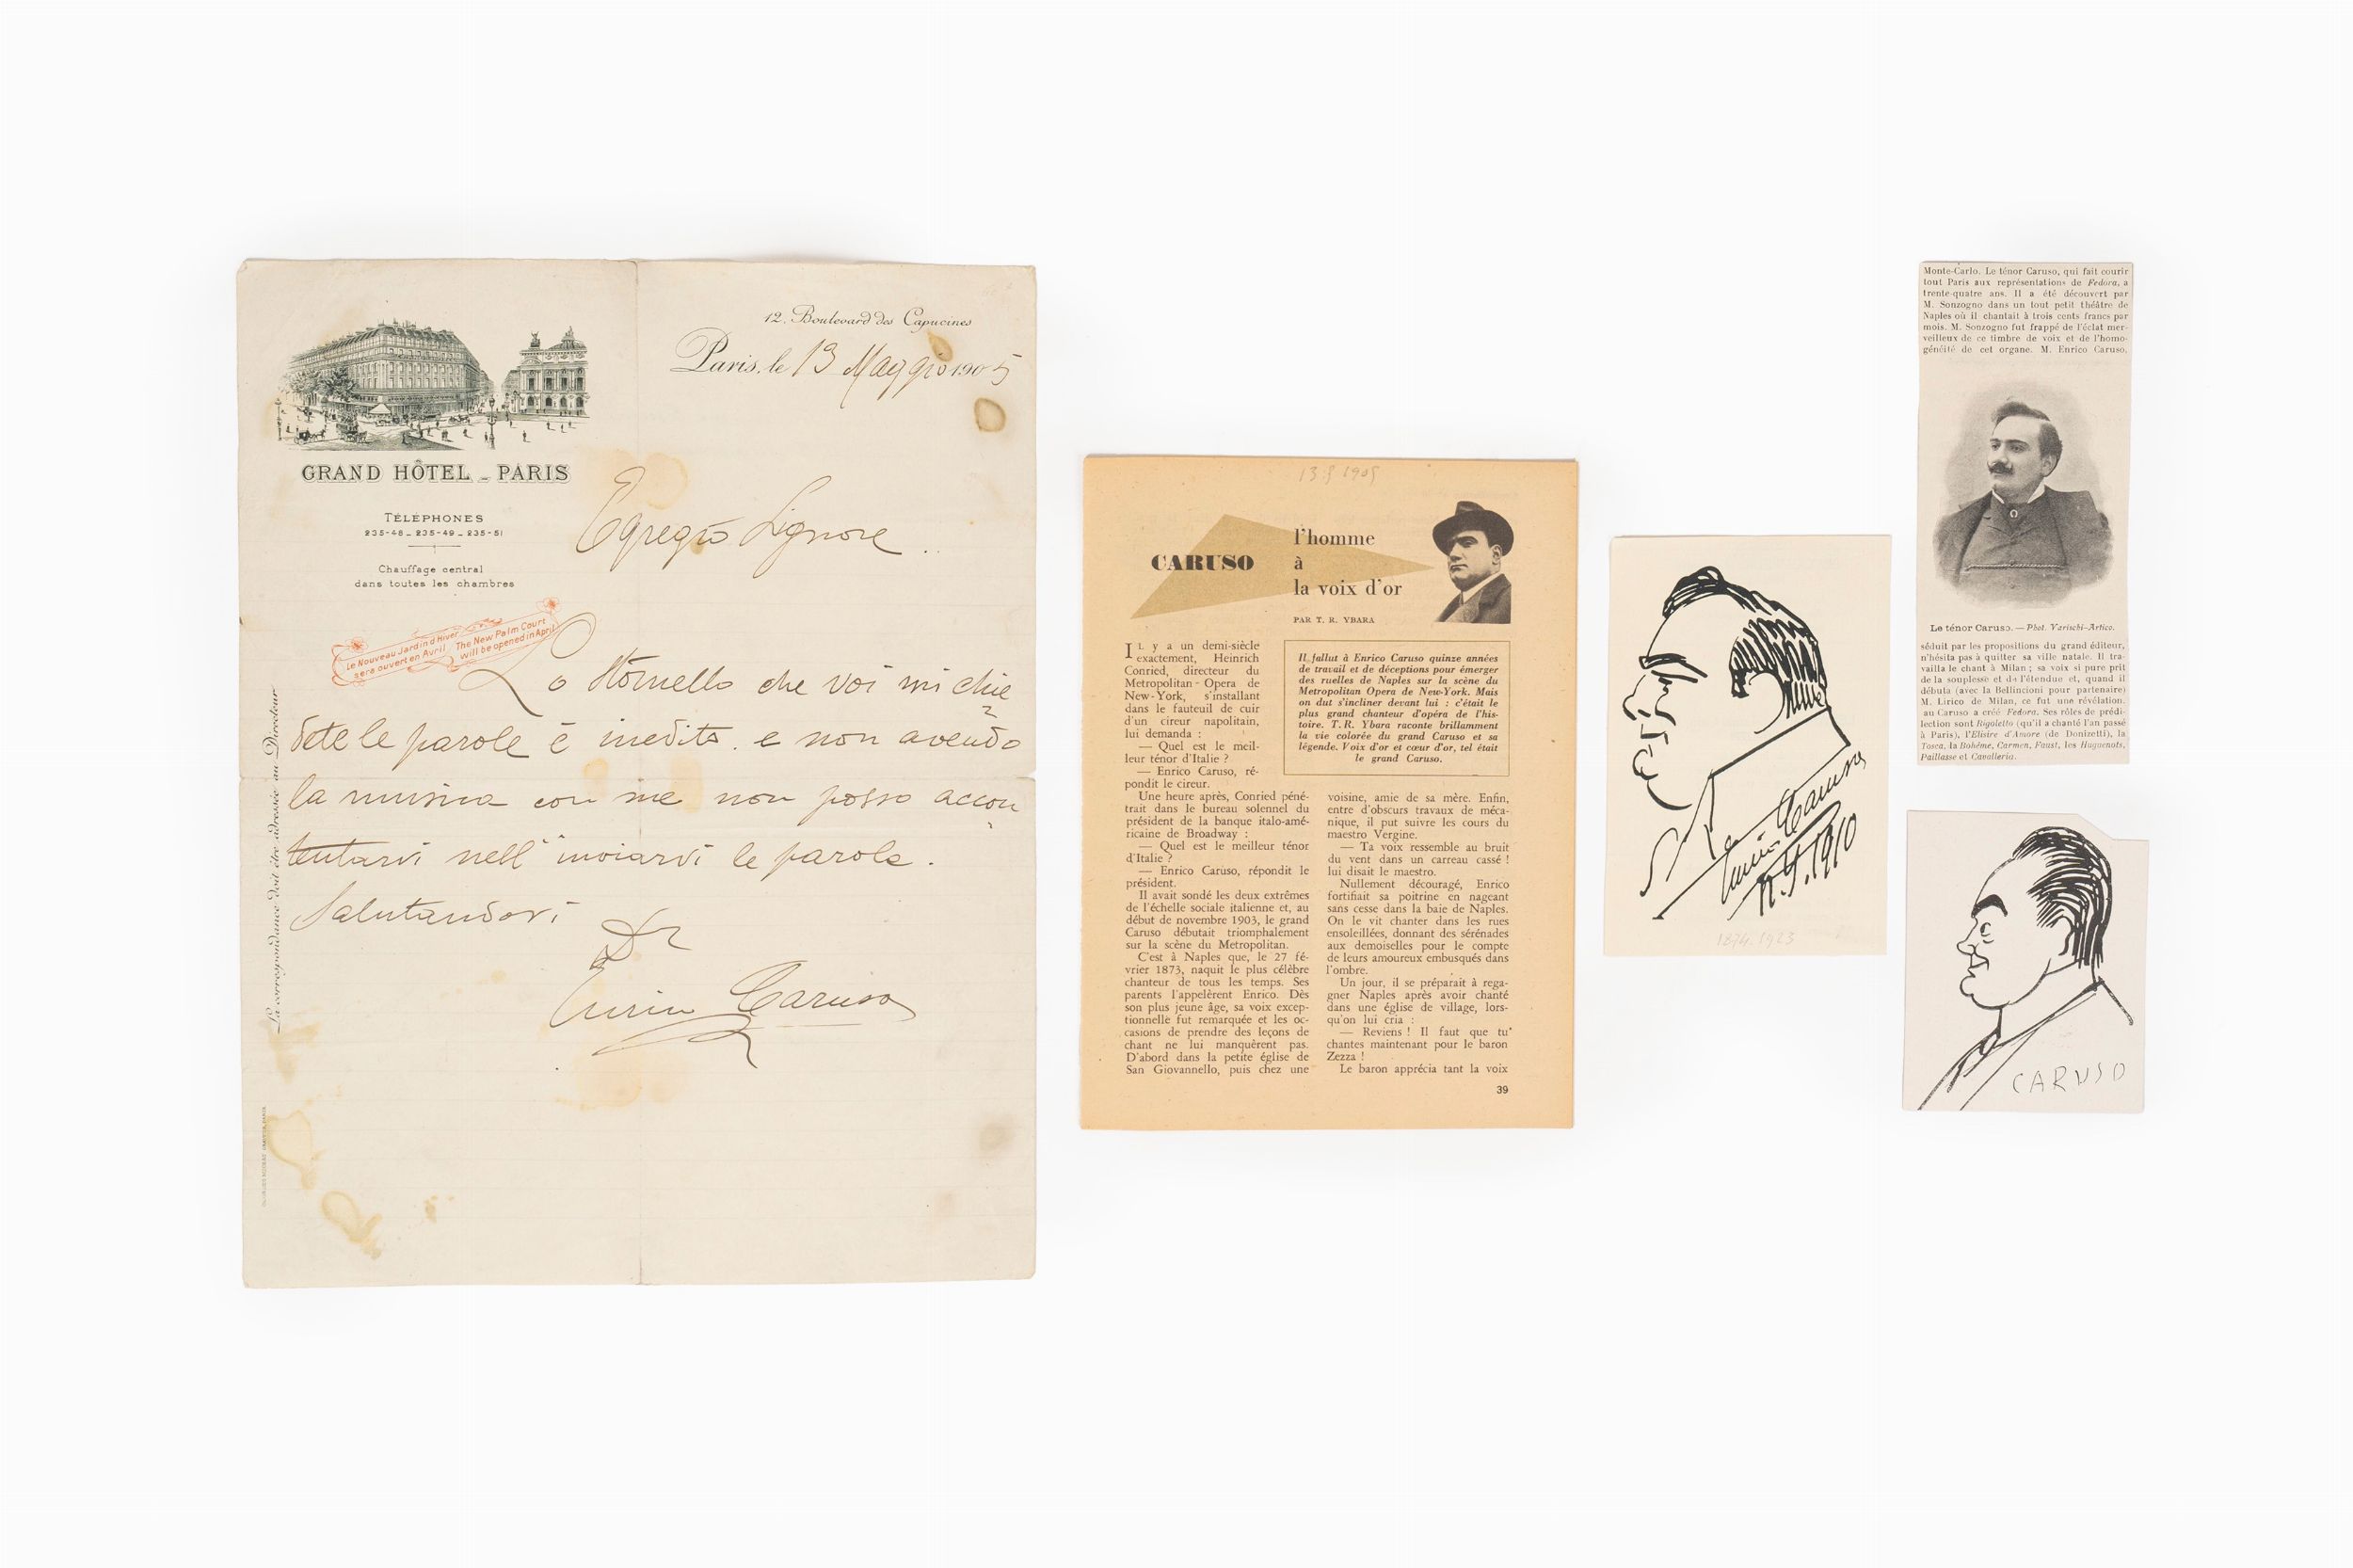 12, Boulevard des Capucines
Paris, le 13 Maggio 1905
GRAND HÔTEL - PARIS
TÉLÉPHONES
235-48 _ 235-49 _ 235-51
Chauffage central
dans toutes les chambres
Le Nouveau Jardin d'Hiver
sera ouvert en Avril
The New Palm Court
will be opened in April
La correspondance doit être adressée au Directeur
Egregio Signore
Lo Stornello che voi mi chie
dete le parole è inedito e non avendo
la musica con me non posso accon
tentarvi nell'inviarvi le parole.
Salutandovi
Enrico Caruso
13.5.1905
CARUSO
l'homme
à
la voix d'or
PAR T. R. YBARA
IL y a un demi-siècle
exactement, Heinrich
Conried, directeur du
Metropolitan - Opera de
New-York, s'installant
dans le fauteuil de cuir
d'un cireur napolitain,
lui demanda :
— Quel est le meil-
leur ténor d'Italie ?
— Enrico Caruso, ré-
pondit le cireur.
Une heure après, Conried péné-
trait dans le bureau solennel du
président de la banque italo-amé-
ricaine de Broadway :
— Quel est le meilleur ténor
d'Italie ?
— Enrico Caruso, répondit le
président.
Il avait sondé les deux extrêmes
de l'échelle sociale italienne et, au
début de novembre 1903, le grand
Caruso débutait triomphalement
sur la scène du Metropolitan.
C'est à Naples que, le 27 fé-
vrier 1873, naquit le plus célèbre
chanteur de tous les temps. Ses
parents l'appelèrent Enrico. Dès
son plus jeune âge, sa voix excep-
tionnelle fut remarquée et les oc-
casions de prendre des leçons de
chant ne lui manquèrent pas.
D'abord dans la petite église de
San Giovannello, puis chez une
Il fallut à Enrico Caruso quinze années
de travail et de déceptions pour émerger
des ruelles de Naples sur la scène du
Metropolitan Opera de New-York. Mais
on dut s'incliner devant lui : c'était le
plus grand chanteur d'opéra de l'his-
toire. T.R. Ybara raconte brillamment
la vie colorée du grand Caruso et sa
légende. Voix d'or et cœur d'or, tel était
le grand Caruso.
voisine, amie de sa mère. Enfin,
entre d'obscurs travaux de méca-
nique, il put suivre les cours du
maestro Vergine.
— Ta voix ressemble au bruit
du vent dans un carreau cassé !
lui disait le maestro.
Nullement découragé, Enrico
fortifiait sa poitrine en nageant
sans cesse dans la baie de Naples.
On le vit chanter dans les rues
ensoleillées, donnant des sérénades
aux demoiselles pour le compte
de leurs amoureux embusqués dans
l'ombre.
Un jour, il se préparait à rega-
gner Naples après avoir chanté
dans une église de village, lors-
qu'on lui cria :
— Reviens ! Il faut que tu
chantes maintenant pour le baron
Zezza !
Le baron apprécia tant la voix
39
Enrico Caruso
N.Y. 1910
1874.1923
Monte-Carlo. Le ténor Caruso, qui fait courir
tout Paris aux représentations de Fedora, a
trente-quatre ans. Il a été découvert par
M. Sonzogno dans un tout petit théâtre de
Naples où il chantait à trois cents francs par
mois. M. Sonzogno fut frappé de l'éclat mer-
veilleux de ce timbre de voix et de l'homo-
généité de cet organe. M. Enrico Caruso,
Le ténor Caruso. — Phot. Varischi-Artico.
séduit par les propositions du grand éditeur,
n'hésita pas à quitter sa ville natale. Il tra-
vailla le chant à Milan ; sa voix si pure prit
de la souplesse et de l'étendue et, quand il
débuta (avec la Bellincioni pour partenaire)
M. Lirico de Milan, ce fut une révélation.
au Caruso a créé Fedora. Ses rôles de prédi-
lection sont Rigoletto (qu'il a chanté l'an passé
à Paris), l'Elisire d'Amore (de Donizetti), la
Tosca, la Bohême, Carmen, Faust, les Huguenots,
Paillasse et Cavalleria.
CARUSO